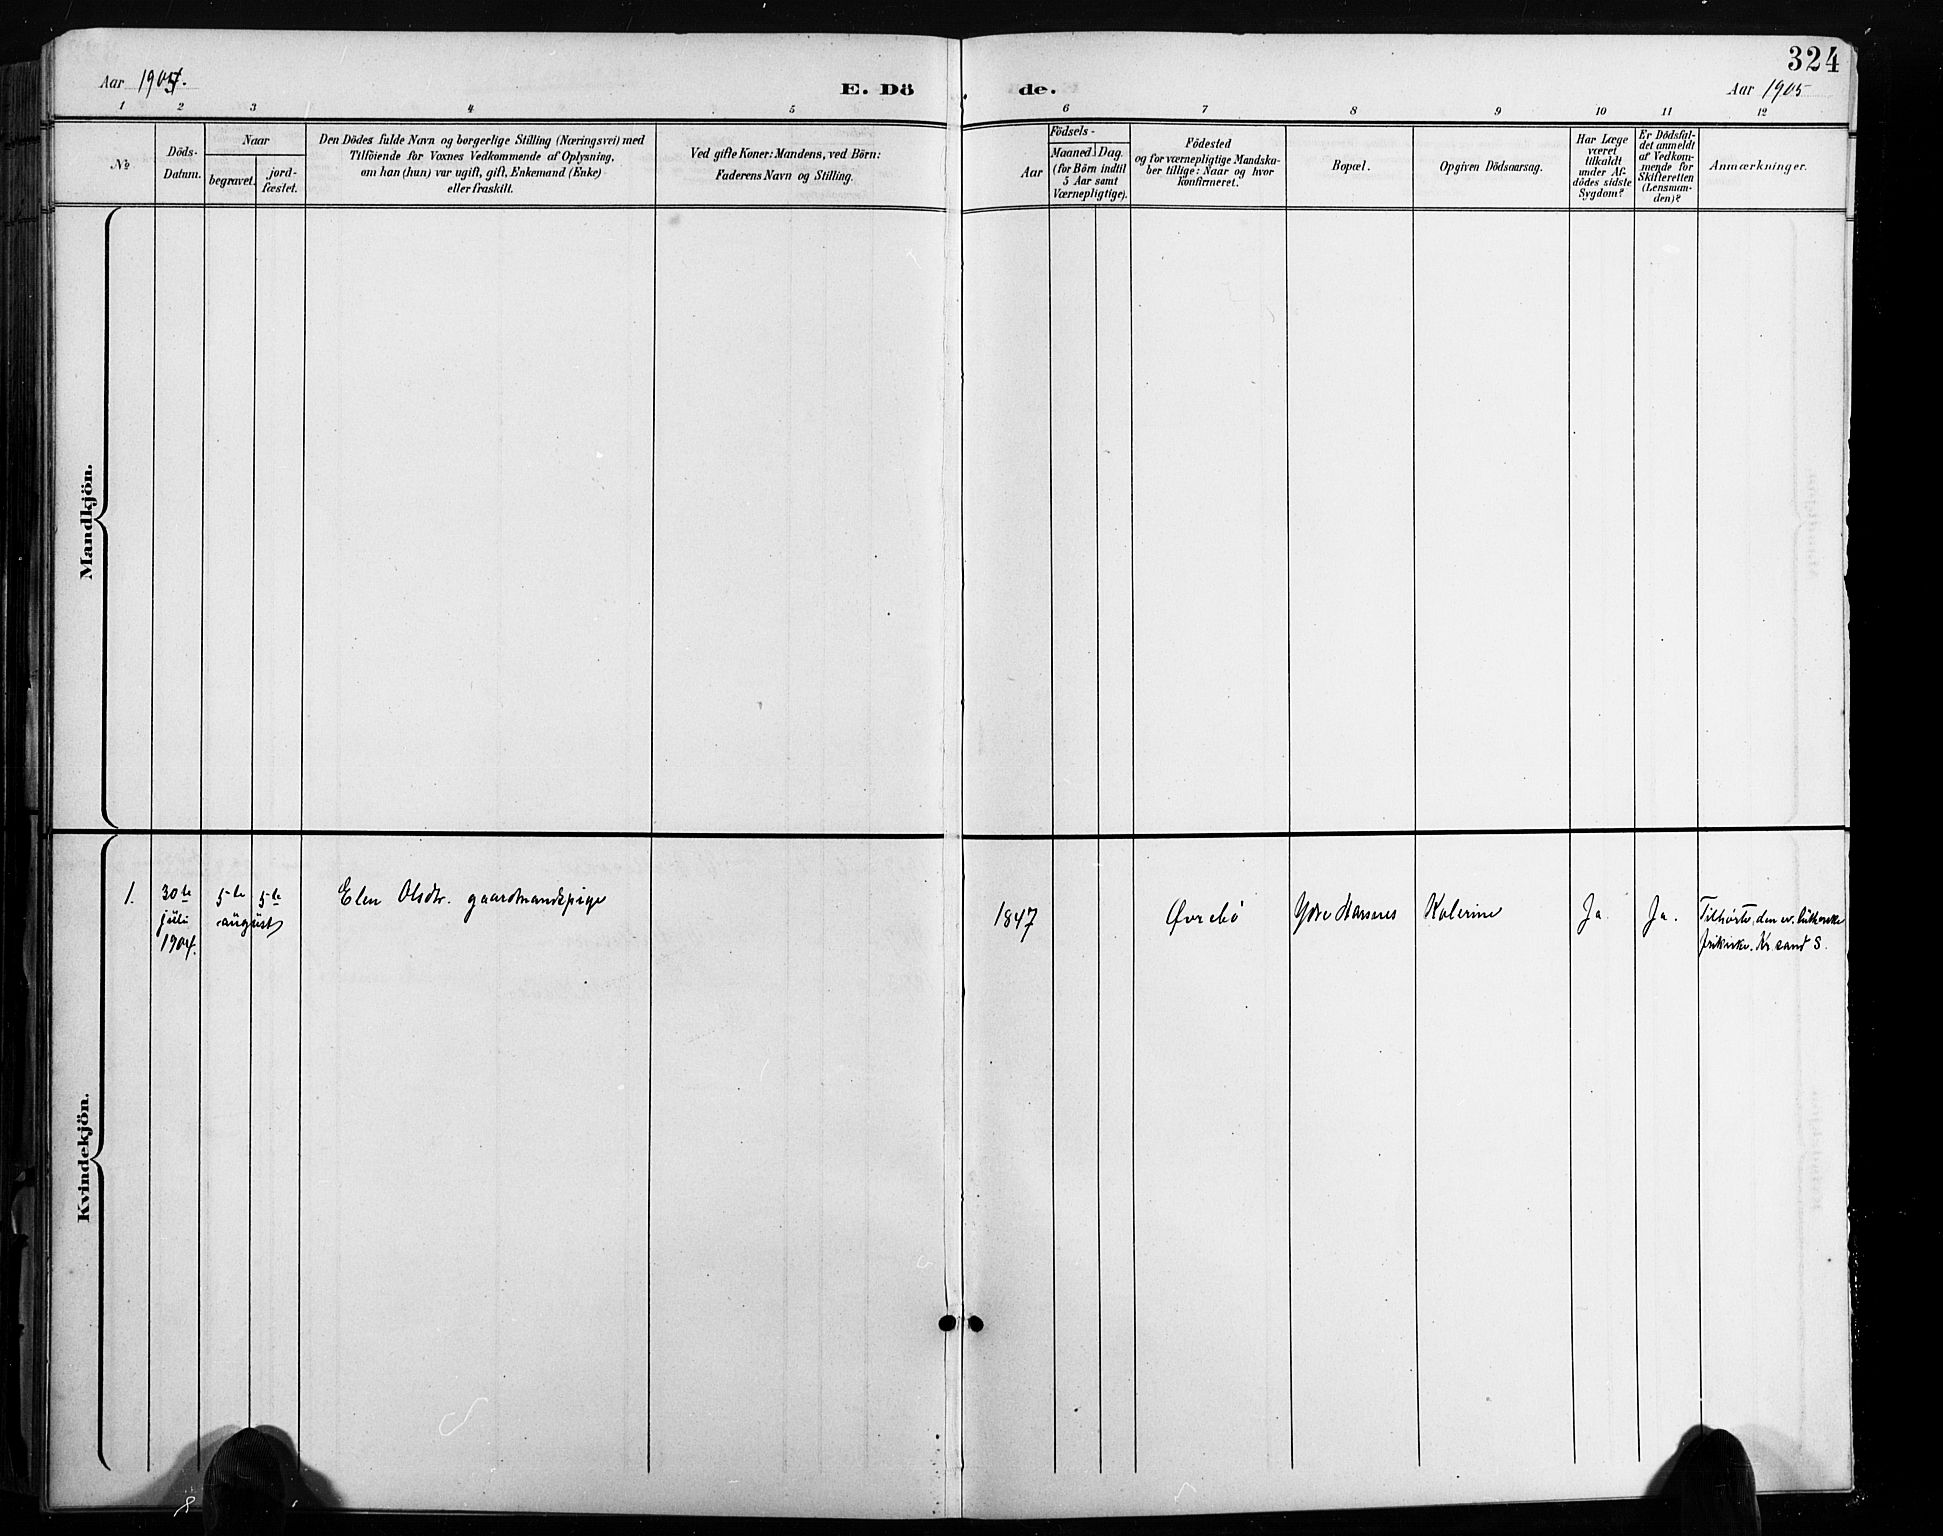 324
Aar 1904.
E. Dö de.
Aar 1905
1 2 3 4 5 6 7 8 9 10 11 12
No
Döds-
Datum.
Naar
begravet.
jord-
fæstet.
Den Dödes fulde Navn og borgerlige Stilling (Næringsvei) med
Tilföiende for Voxnes Vedkommende af Oplysning,
om han (hun) var ugift, gift, Enkemand (Enke)
eller fraskilt.
Ved gifte Koner: Mandens, ved Börn:
Faderens Navn og Stilling.
Aar
Födsels-
Maaned. Dag.
(for Börn indtil
5 Aar samt
Værnepligtige).
Födested
og for værnepligtige Mandska-
ber tillige: Naar og hvor
konfirmeret.
Bopæl.
Opgiven Dödsaarsag.
Har Læge
været
tilkaldt
under Af-
dödes sidste
Sygdom?
Er Dödsfal-
det anmeldt
af Vedkom-
mende for
Skifteretten
(Lensman-
den)?
Anmærkninger.
Mandkjön.
Kvindekjön.
1.
30te
juli
1904.
5te 5te
august
Elen Olsdtr. gaardmandspige
1847
Øvrebö
Ydre
Kolerine
Ja.
Ja.
Tilhörte den ev. lutherske
frikirke. Kr.sand S.